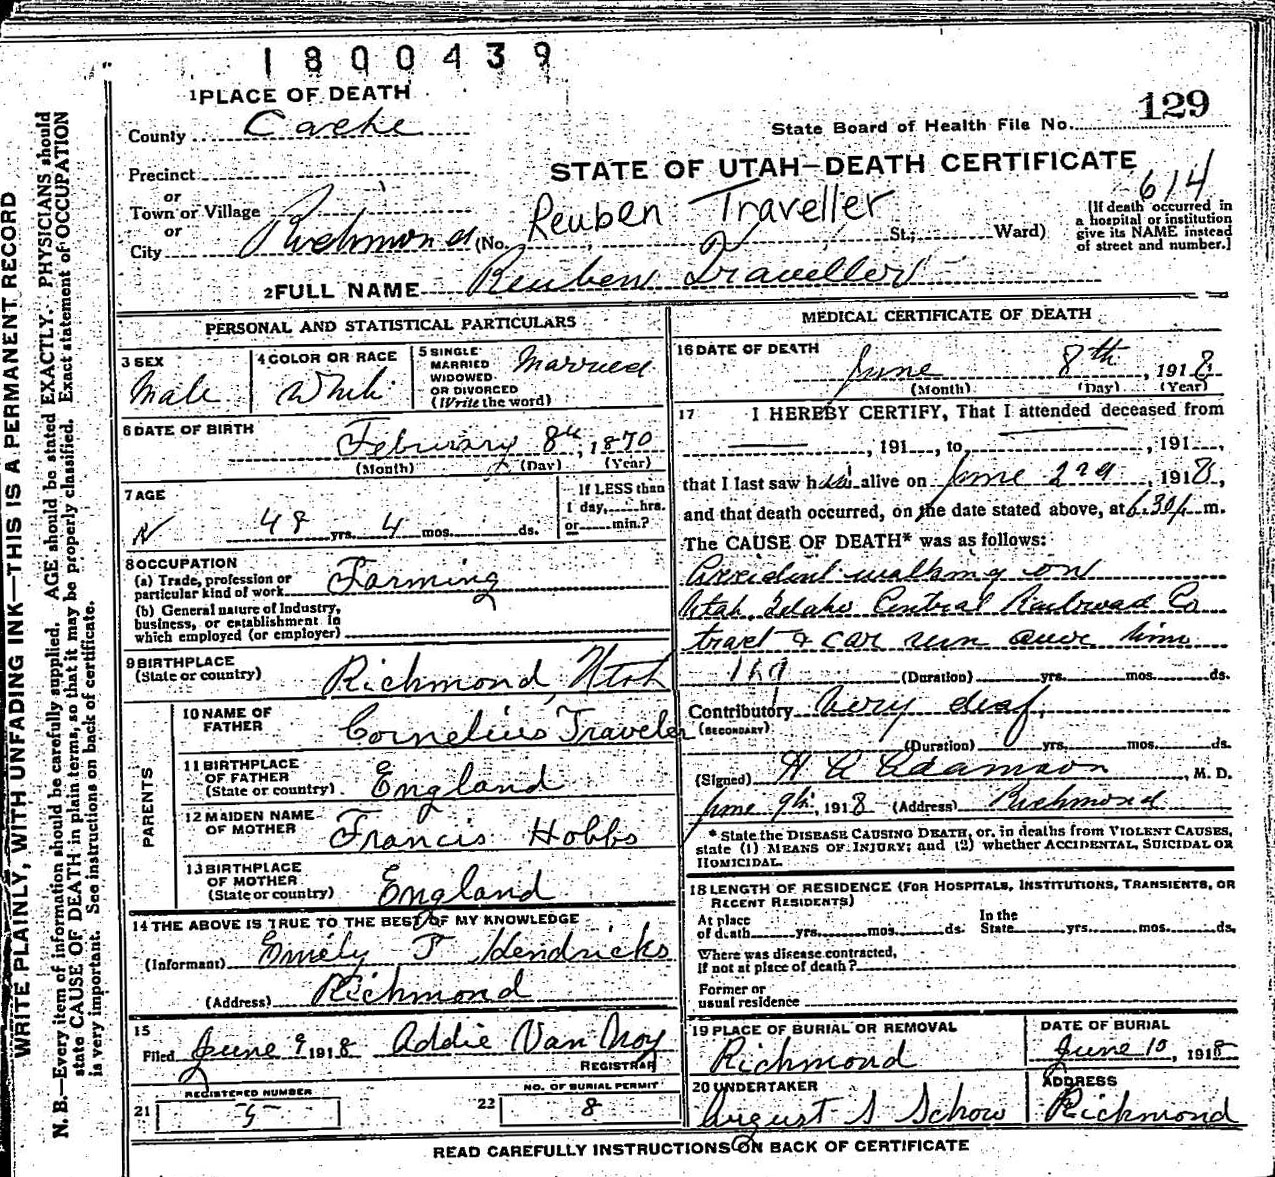 1800439
1 PLACE OF DEATH
129
County Cache
State Board of Health File No.
STATE OF UTAH—DEATH CERTIFICATE
Precinct
614
or
Town or Village
Reuben Traveller
[If death occurred in
a hospital or institution
give its NAME instead
of street and number.]
or
City Richmond (No. St.; Ward)
2 FULL NAME Reuben Traveller
PERSONAL AND STATISTICAL PARTICULARS
3 SEX
Male
4 COLOR OR RACE
White
5 SINGLE
MARRIED
WIDOWED
OR DIVORCED
(Write the word)
Married
6 DATE OF BIRTH
February 8th, 1870
(Month) (Day) (Year)
7 AGE
48 yrs. 4 mos. ds.
If LESS than
1 day, hrs.
or min.?
8 OCCUPATION
(a) Trade, profession or
particular kind of work Farming
(b) General nature of Industry,
business, or establishment in
which employed (or employer)
9 BIRTHPLACE
(State or country) Richmond, Utah
PARENTS
10 NAME OF
FATHER Cornelius Traveler
11 BIRTHPLACE
OF FATHER
(State or country) England
12 MAIDEN NAME
OF MOTHER Francis Hobbs
13 BIRTHPLACE
OF MOTHER
(State or country) England
14 THE ABOVE IS TRUE TO THE BEST OF MY KNOWLEDGE
(Informant) Emily T Hendricks
(Address) Richmond
15
Filed June 9 1918 Addie Van Noy
REGISTRAR
REGISTERED NUMBER
21 5
NO. OF BURIAL PERMIT
22 8
MEDICAL CERTIFICATE OF DEATH
16 DATE OF DEATH
June 8th, 1918
(Month) (Day) (Year)
17 I HEREBY CERTIFY, That I attended deceased from
, 191 , to , 191 ,
that I last saw him alive on June 2nd, 1918,
and that death occurred, on the date stated above, at 6.30 p m.
The CAUSE OF DEATH* was as follows:
Accident walking on
Utah Idaho Central Railroad Co
tract & car run over him
(Duration) yrs. mos. ds.
Contributory Very deaf,
(SECONDARY)
(Duration) yrs. mos. ds.
(Signed) Adamson, M. D.
June 9th, 1918 (Address) Richmond
* State the DISEASE CAUSING DEATH, or, in deaths from VIOLENT CAUSES,
state (1) MEANS OF INJURY; and (2) whether ACCIDENTAL, SUICIDAL OR
HOMICIDAL.
18 LENGTH OF RESIDENCE (FOR HOSPITALS, INSTITUTIONS, TRANSIENTS, OR
RECENT RESIDENTS)
At place
of death yrs. mos. ds.
In the
State yrs. mos. ds.
Where was disease contracted,
if not at place of death?
Former or
usual residence
19 PLACE OF BURIAL OR REMOVAL
Richmond
DATE OF BURIAL
June 10, 1918
20 UNDERTAKER
August S Schow
ADDRESS
Richmond
READ CAREFULLY INSTRUCTIONS ON BACK OF CERTIFICATE
WRITE PLAINLY, WITH UNFADING INK—THIS IS A PERMANENT RECORD
N. B.—Every item of information should be carefully supplied. AGE should be stated EXACTLY. PHYSICIANS should
state CAUSE OF DEATH in plain terms, so that it may be properly classified. Exact statement of OCCUPATION
is very important. See instructions on back of certificate.